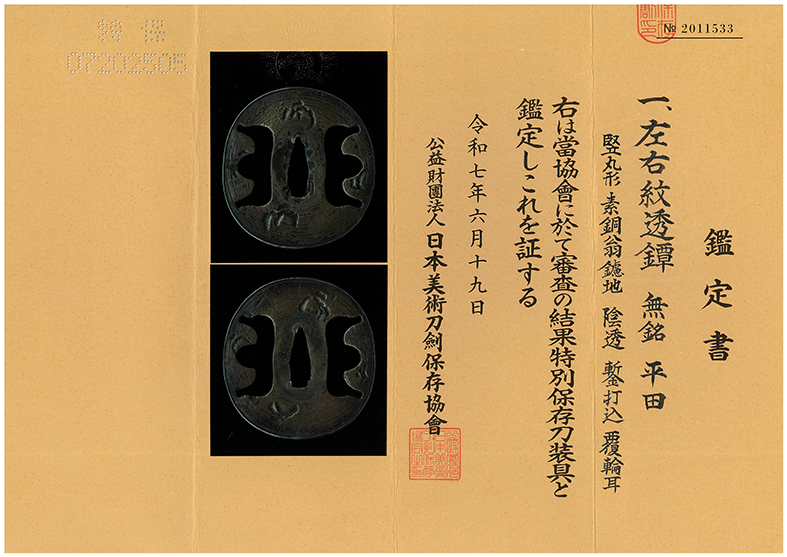 № 2011533
鑑定書
一、左右紋透鐔 無銘 平田
竪丸形 素銅翁鑢地 陰透 鏨打込 覆輪耳
右は當協會に於て審査の結果特別保存刀装具と
鑑定しこれを証する
令和七年六月十九日
公益財團法人 日本美術刀劍保存協會
特保
07202505